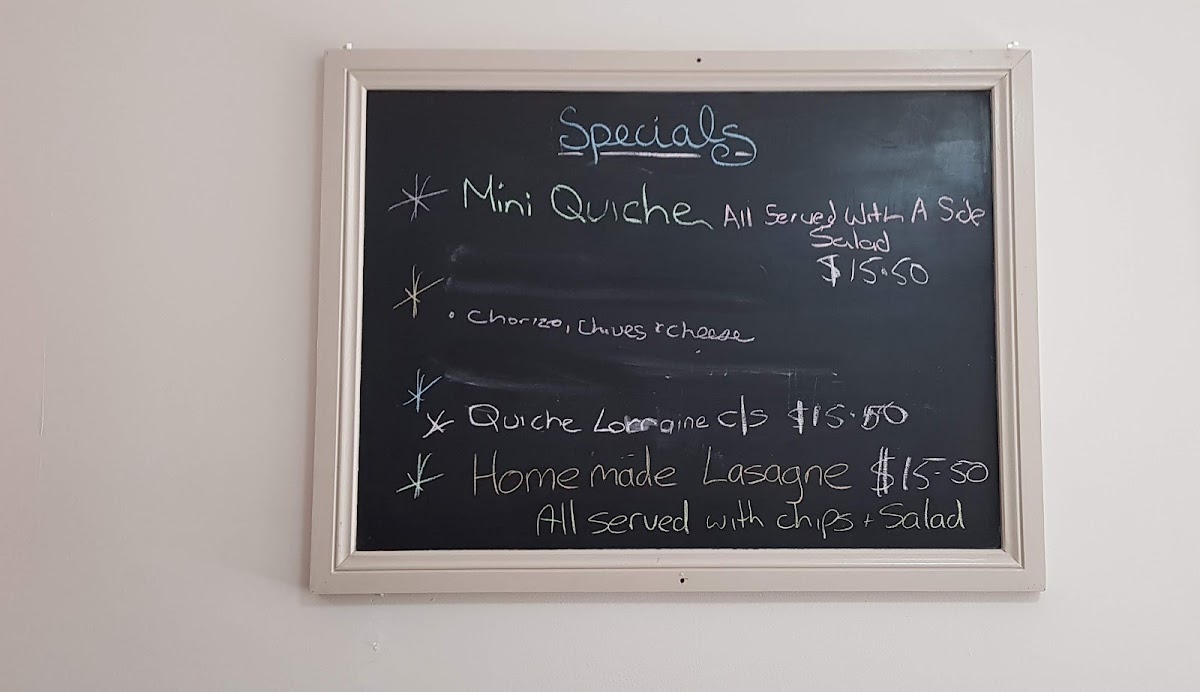 Specials
Mini Quiche All Served With A Side
Salad
$15.50
• Chorizo, Chives + cheese
Quiche Lorraine c/s $15.50
Homemade Lasagne $15-50
All served with chips + Salad